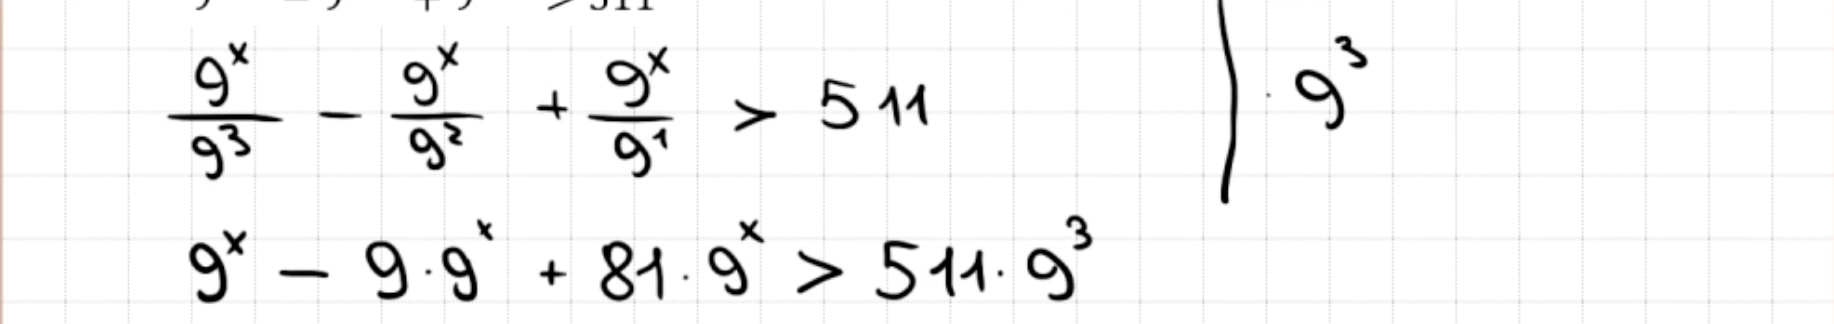 > 511
9^x/9^3 − 9^x/9^2 + 9^x/9^1 > 511 | · 9^3
9^x − 9·9^x + 81·9^x > 511·9^3